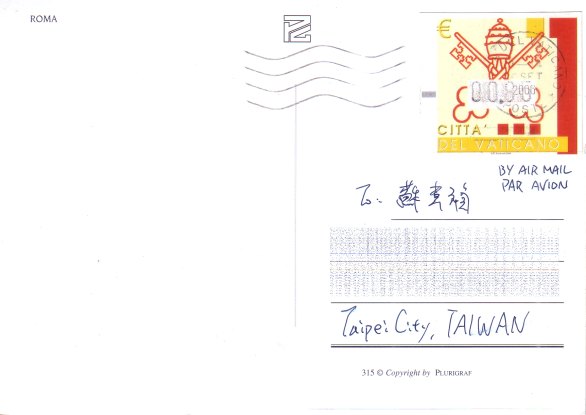 ROMA
€
CITTA'
DEL VATICANO
BY AIR MAIL
PAR AVION
To:
Taipei City, TAIWAN
315 © Copyright by PLURIGRAF